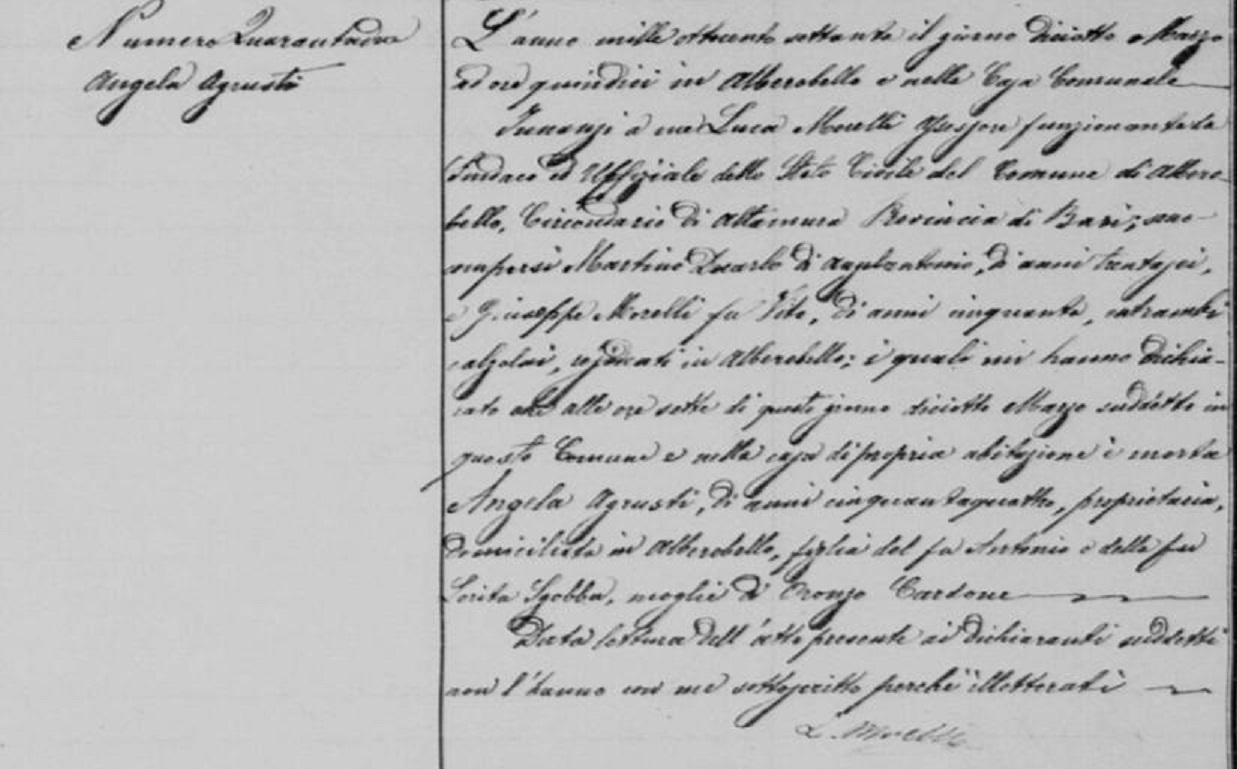 Numero Quarantadue
Angela Agrusti
L'anno mille ottocento settanta il giorno diciotto Marzo
ad ore quindici in Alberobello e nella Casa Comunale
Innanzi a me Luca Morelli Assessore funzionante da
Sindaco ed Uffiziale dello Stato Civile del Comune di Albero-
bello, Circondario di Altamura Provincia di Bari; sono
comparsi Martino Decarlo di Angelantonio, di anni trentasei,
e Giuseppe Morelli fu Vito, di anni cinquanta, entrambi
calzolai, residenti in Alberobello; i quali mi hanno dichia-
rato che alle ore sette di questo giorno diciotto Marzo suddetto in
questo Comune e nella casa di propria abitazione è morta
Angela Agrusti, di anni cinquantaquattro, proprietaria,
domiciliata in Alberobello, figlia del fu Antonio e della fu
Dorita Sgobba, moglie di Oronzo Cardone
Data lettura dell'atto presente ai dichiaranti suddetti
non l'hanno con me sottoscritto perchè illetterati
L. Morelli